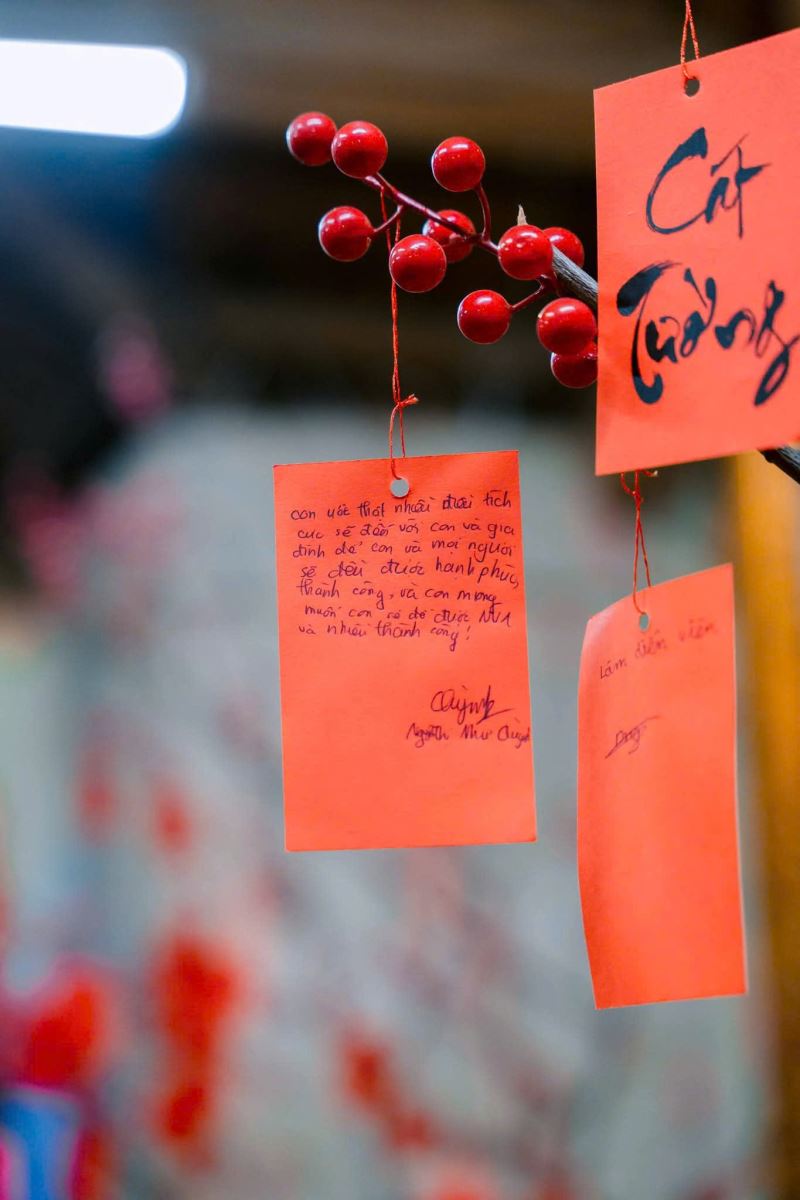 con ước thật nhiều điều tích
cực sẽ đến với con và gia
đình để con và mọi người
sẽ đều được hạnh phúc,
thành công, và con mong
muốn con sẽ đỗ được
và nhiều thành công!
Quỳnh
Như Quỳnh
Cát
Tường
Làm diễn viên